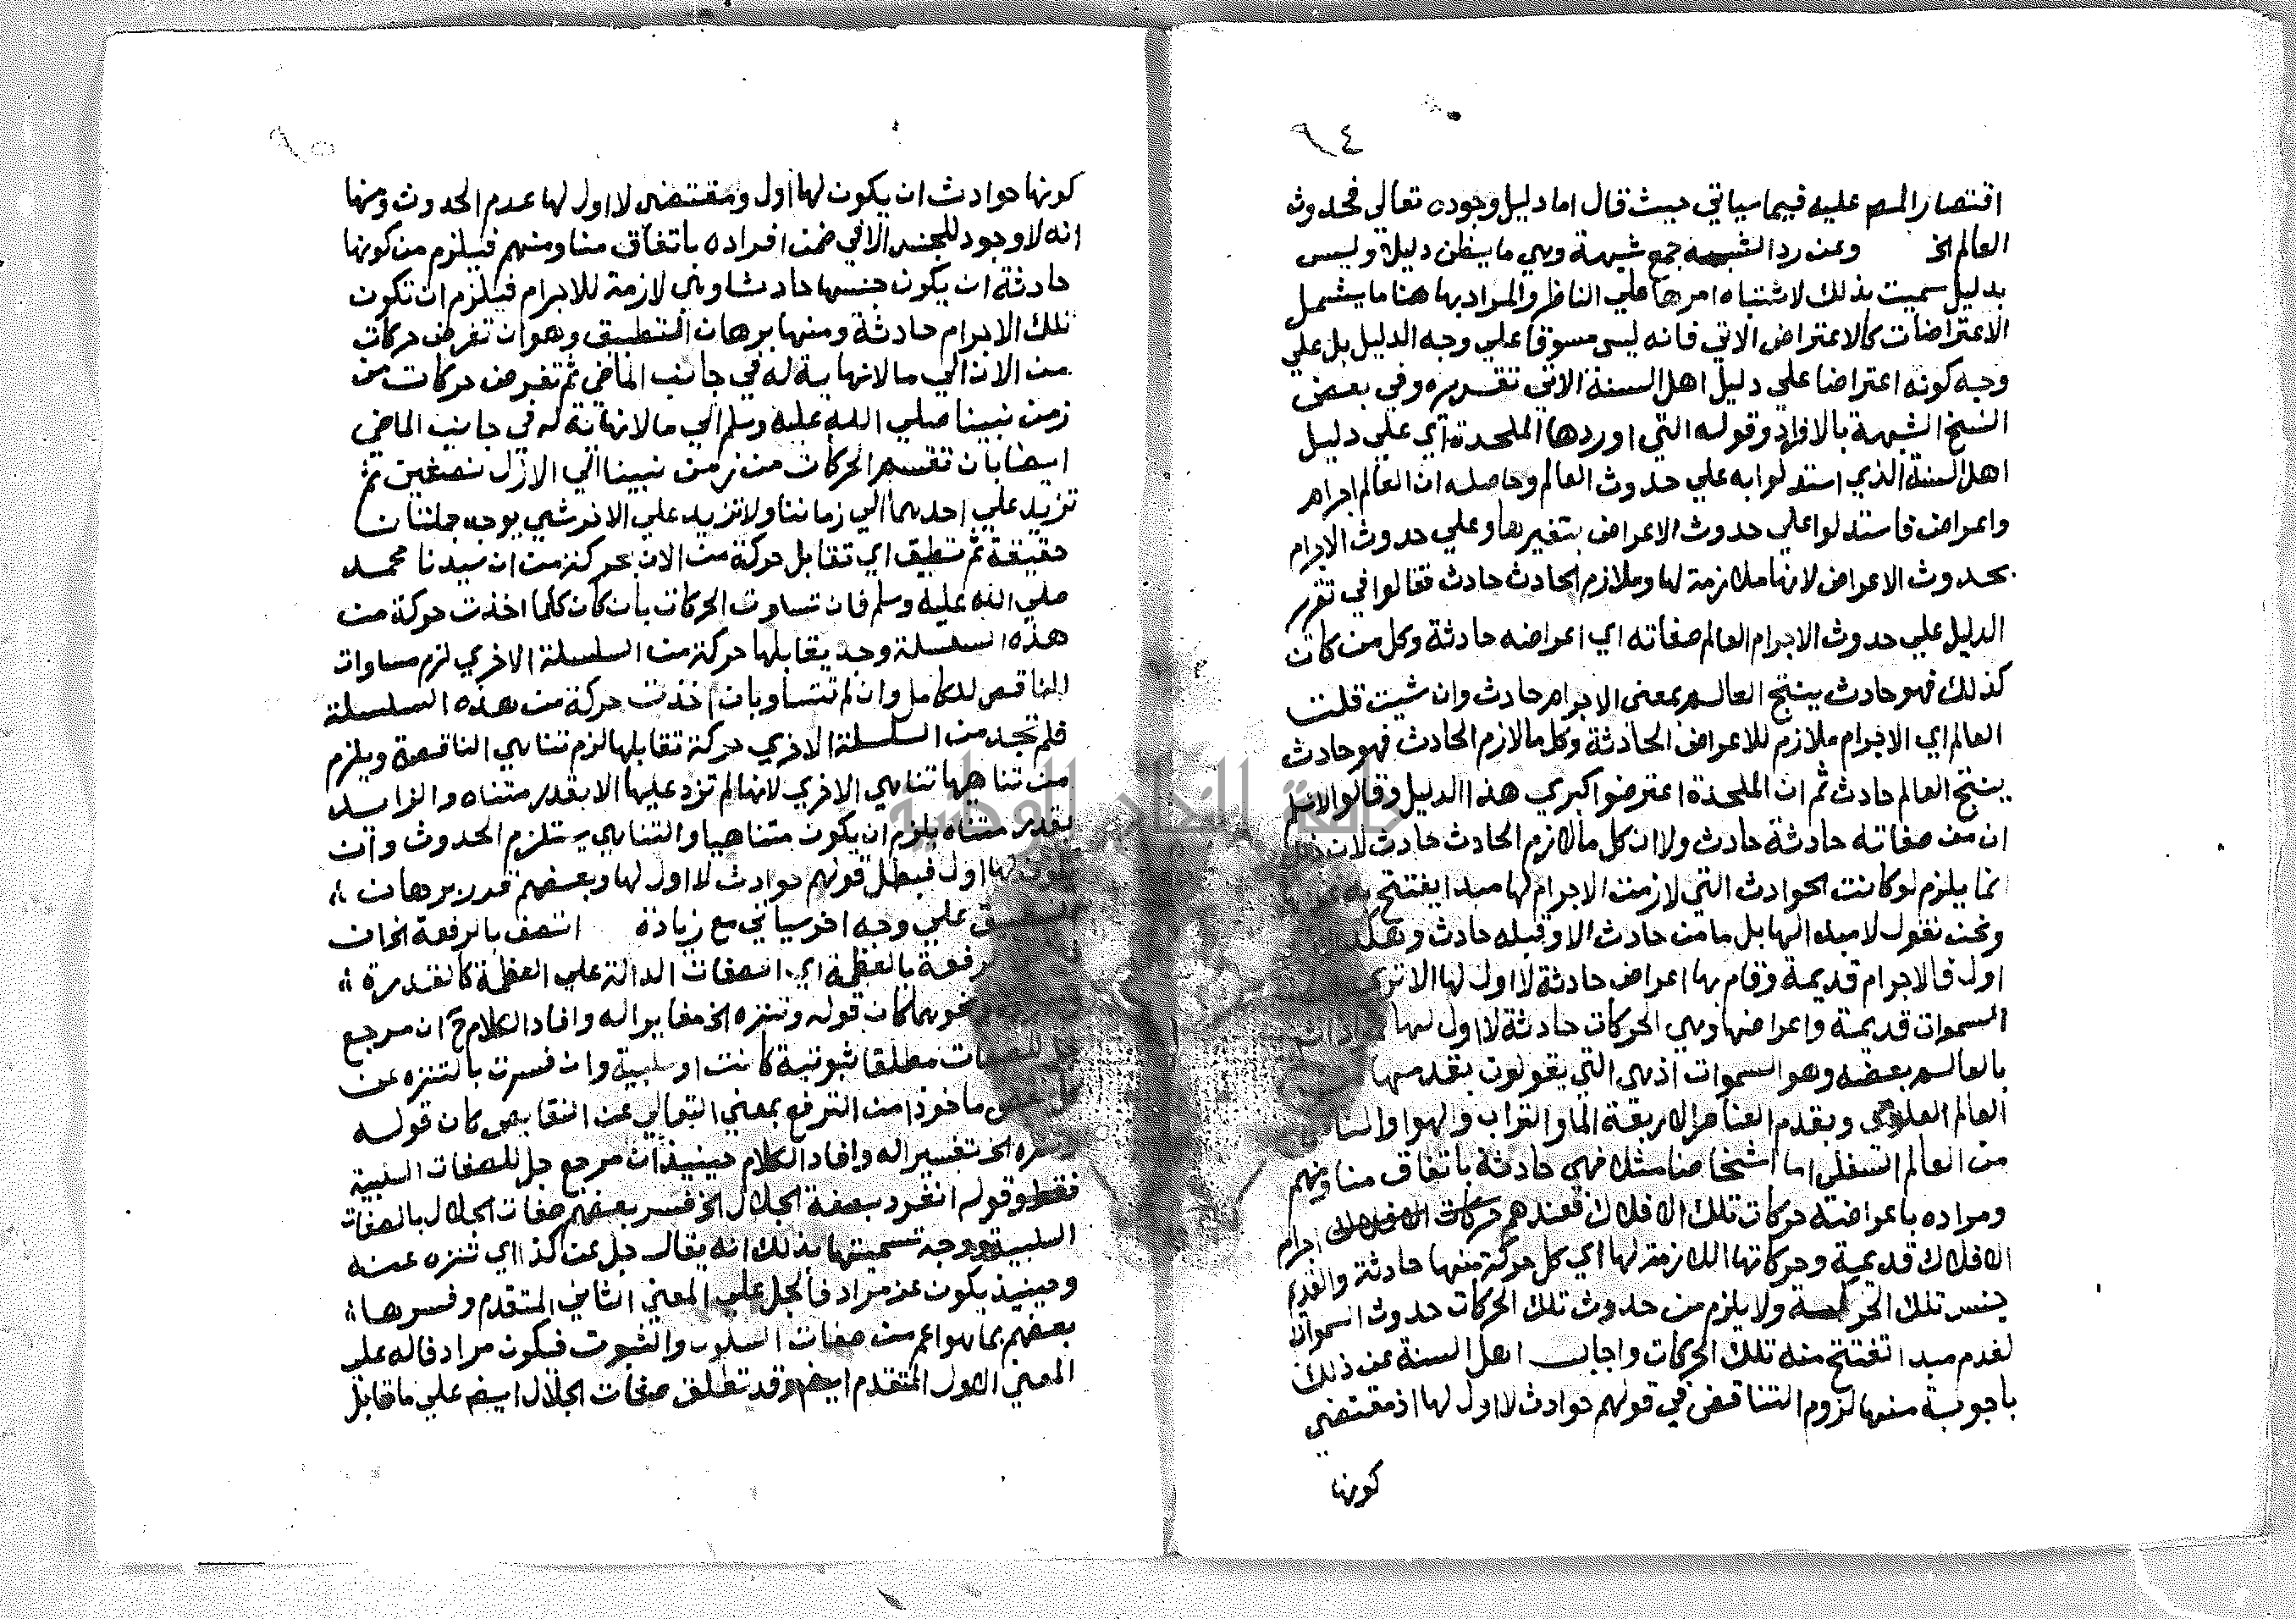 ٤
اقتصار المصـ عليه فيما سياتي حيث قال اما دليل وجوده تعالي فحدوث
العالم الخ وعن رد الشبه جمع شبهة وهي ما يظن دليلا وليس
بدليل سميت بذلك لاشتباه امرها علي الناظر والمراد بها هنا ما يشمل
الاعتراضات كالاعتراض الاتي فانه ليس مسوقا علي وجه الدليل بل علي
وجه كونه اعتراضا علي دليل اهل السنة الاتي تقريره وفي بعض
النسخ الشبهة بالافراد وقوله التي اوردها الملحدة اي علي دليل
اهل السنة الذي استدلوا به علي حدوث العالم وحاصله ان العالم اجرام
واعراض فاستدلوا علي حدوث الاعراض بتغيرها وعلي حدوث الاجرام
بحدوث الاعراض لانها ملازمة لها وملازم الحادث حادث فقالوا في تقرير
الدليل علي حدوث الاجرام العالم صفاته اي اعراضه حادثة وكل من كان
كذلك فهو حادث ينتج العالم بمعني الاجرام حادث وان شيت قلت
العالم اي الاجرام ملازم للاعراض الحادثة وكل ما لازم الحادث فهو حادث
ينتج العالم حادث ثم ان الملحدة اعترضوا كبري هذا الدليل وقالوا لا نسلم
ان من صفاته حادثة حادث ولا ان كل ما لازم الحادث حادث لان ذلك
انما يلزم لو كانت الحوادث التي لازمت الاجرام لها مبدا يفتتح به
ونحن نقول لا مبدا لها بل ما من حادث الا وقبله حادث وهكذا
اول فالاجرام قديمة وقام بها اعراض حادثة لا اول لها الا تري
السموات قديمة واعراضها وهي الحركات حادثة لا اول لها
بالعالم بعضه وهو السموات اذ هي التي يقولون بقدمها
العالم العلوي وبقدم العناصر الاربعة الما والتراب والهوا والنار
من العالم السفلي اما اشخاصنا مثلا فهي حادثة باتفاق منا ومنهم
ومراده باعراضه حركات تلك الافلاك فعندهم حركات الافلاك اجرام
الافلاك قديمة وحركاتها اللازمة لها اي كل حركة منها حادثة والقديم
جنس تلك الحركة ولا يلزم من حدوث تلك الحركات حدوث السموات
لعدم مبدا تفتتح منه تلك الحركات واجاب اهل السنة عن ذلك
باجوبة منها لزوم التناقض في قولهم حوادث لا اول لها اذ مقتضي
كونها
٥
كونها حوادث ان يكون لها اول ومقتضي لا اول لها عدم الحدوث ومنها
انه لا وجود للجنس الا في ضمن افراده باتفاق منا ومنهم فيلزم من كونها
حادثة ان يكون جنسها حادثا وهي لازمة للاجرام فيلزم ان تكون
تلك الاجرام حادثة ومنها برهان التطبيق وهو ان تفرض حركات
من الان الي ما لا نهاية له في جانب الماضي ثم تفرض حركات من
زمن نبينا صلي الله عليه وسلم الي ما لا نهاية له في جانب الماضي
ايضا بان تقسم الحركات من زمن نبينا الي الازل نصفين ثم
تزيد علي احدهما الي زماننا ولا تزيد علي الاخر شي يوجد جملتان
حقيقة ثم تطبق اي تقابل حركة من الان بحركة من ان سيدنا محمد
صلي الله عليه وسلم فان تساوت الحركات بان كان كلما اخذت حركة من
هذه السلسلة وجد يقابلها حركة من السلسلة الاخري لزم مساوات
الناقص للكامل وان لم تتساو بان اخذت حركة من هذه السلسلة
فلم تجد من السلسلة الاخري حركة تقابلها لزم تناهي الناقصة ويلزم
من تناهيها تناهي الاخري لانها لم تزد عليها الا بقدر متناه والزايد
بقدر متناه يلزم ان يكون متناهيا والتناهي يستلزم الحدوث وان
يكون لها اول فبطل قولهم حوادث لا اول لها وبعضهم قدر برهان
التطبيق علي وجه اخر سياتي مع زيادة اتصف بالرفعة الخ ان
رفعة بالعظمة اي الصفات الدالة علي العظمة كالقدرة
ونحوهما كان قوله وتنزه الخ مغايرا له وافاد الكلام ح ان مرجع
جل للصفات مطلقا ثبوتية كانت او سلبية وان فسرت بالتنزه عن
كل نقص ماخوذا من الترفع بمعني التعالي عن النقايص كان قوله
وتنزه الخ تفسيرا له وافاد الكلام حينيذ ان مرجع جل للصفات السلبية
فقط وقوله انفرد بصفة الجلال الخ فسر بعضهم صفات الجلال بالصفات
السلبية ووجه تسميتها بذلك انه يقال جل عن كذا اي تنزه عنه
وحينيذ يكون عز مرادفا لجل علي المعني الثاني المتقدم وفسرها
بعضهم بما هو اعم من صفات السلوب والثبوت فيكون مرادفا له علي
المعني الاول المتقدم ايضا وقد تطلق صفات الجلال ايضـ علي ما قابل